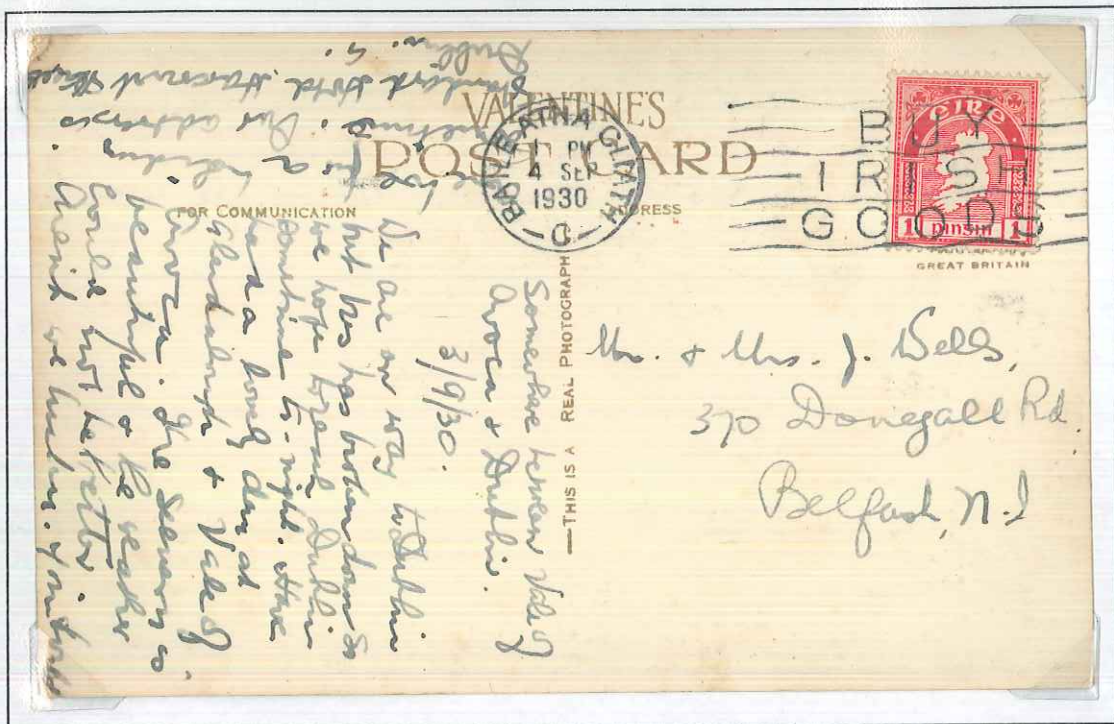 VALENTINE'S
POST CARD
FOR COMMUNICATION
ADDRESS
BAILE ÁTHA CLIATH
1 PM
4 SEP
1930
C
BUY
IRISH
GOODS
EIRE
1 PINSIN 1
GREAT BRITAIN
THIS IS A REAL PHOTOGRAPH
Mr. & Mrs. J. Bells,
370 Donegall Rd.
Belfast, N.I
Somewhere between Vale of
Avoca & Dublin.
3/9/30.
We are on way to Dublin
but bus has broken down so
we hope to reach Dublin
sometime to-night. Have
had a lovely day at
Glendalough & Vale of
Avoca. The scenery is
beautiful & the weather
could not be better.
Aren't we lucky.
for a
Our address is
Standard Hotel Harcourt Street
Dublin.